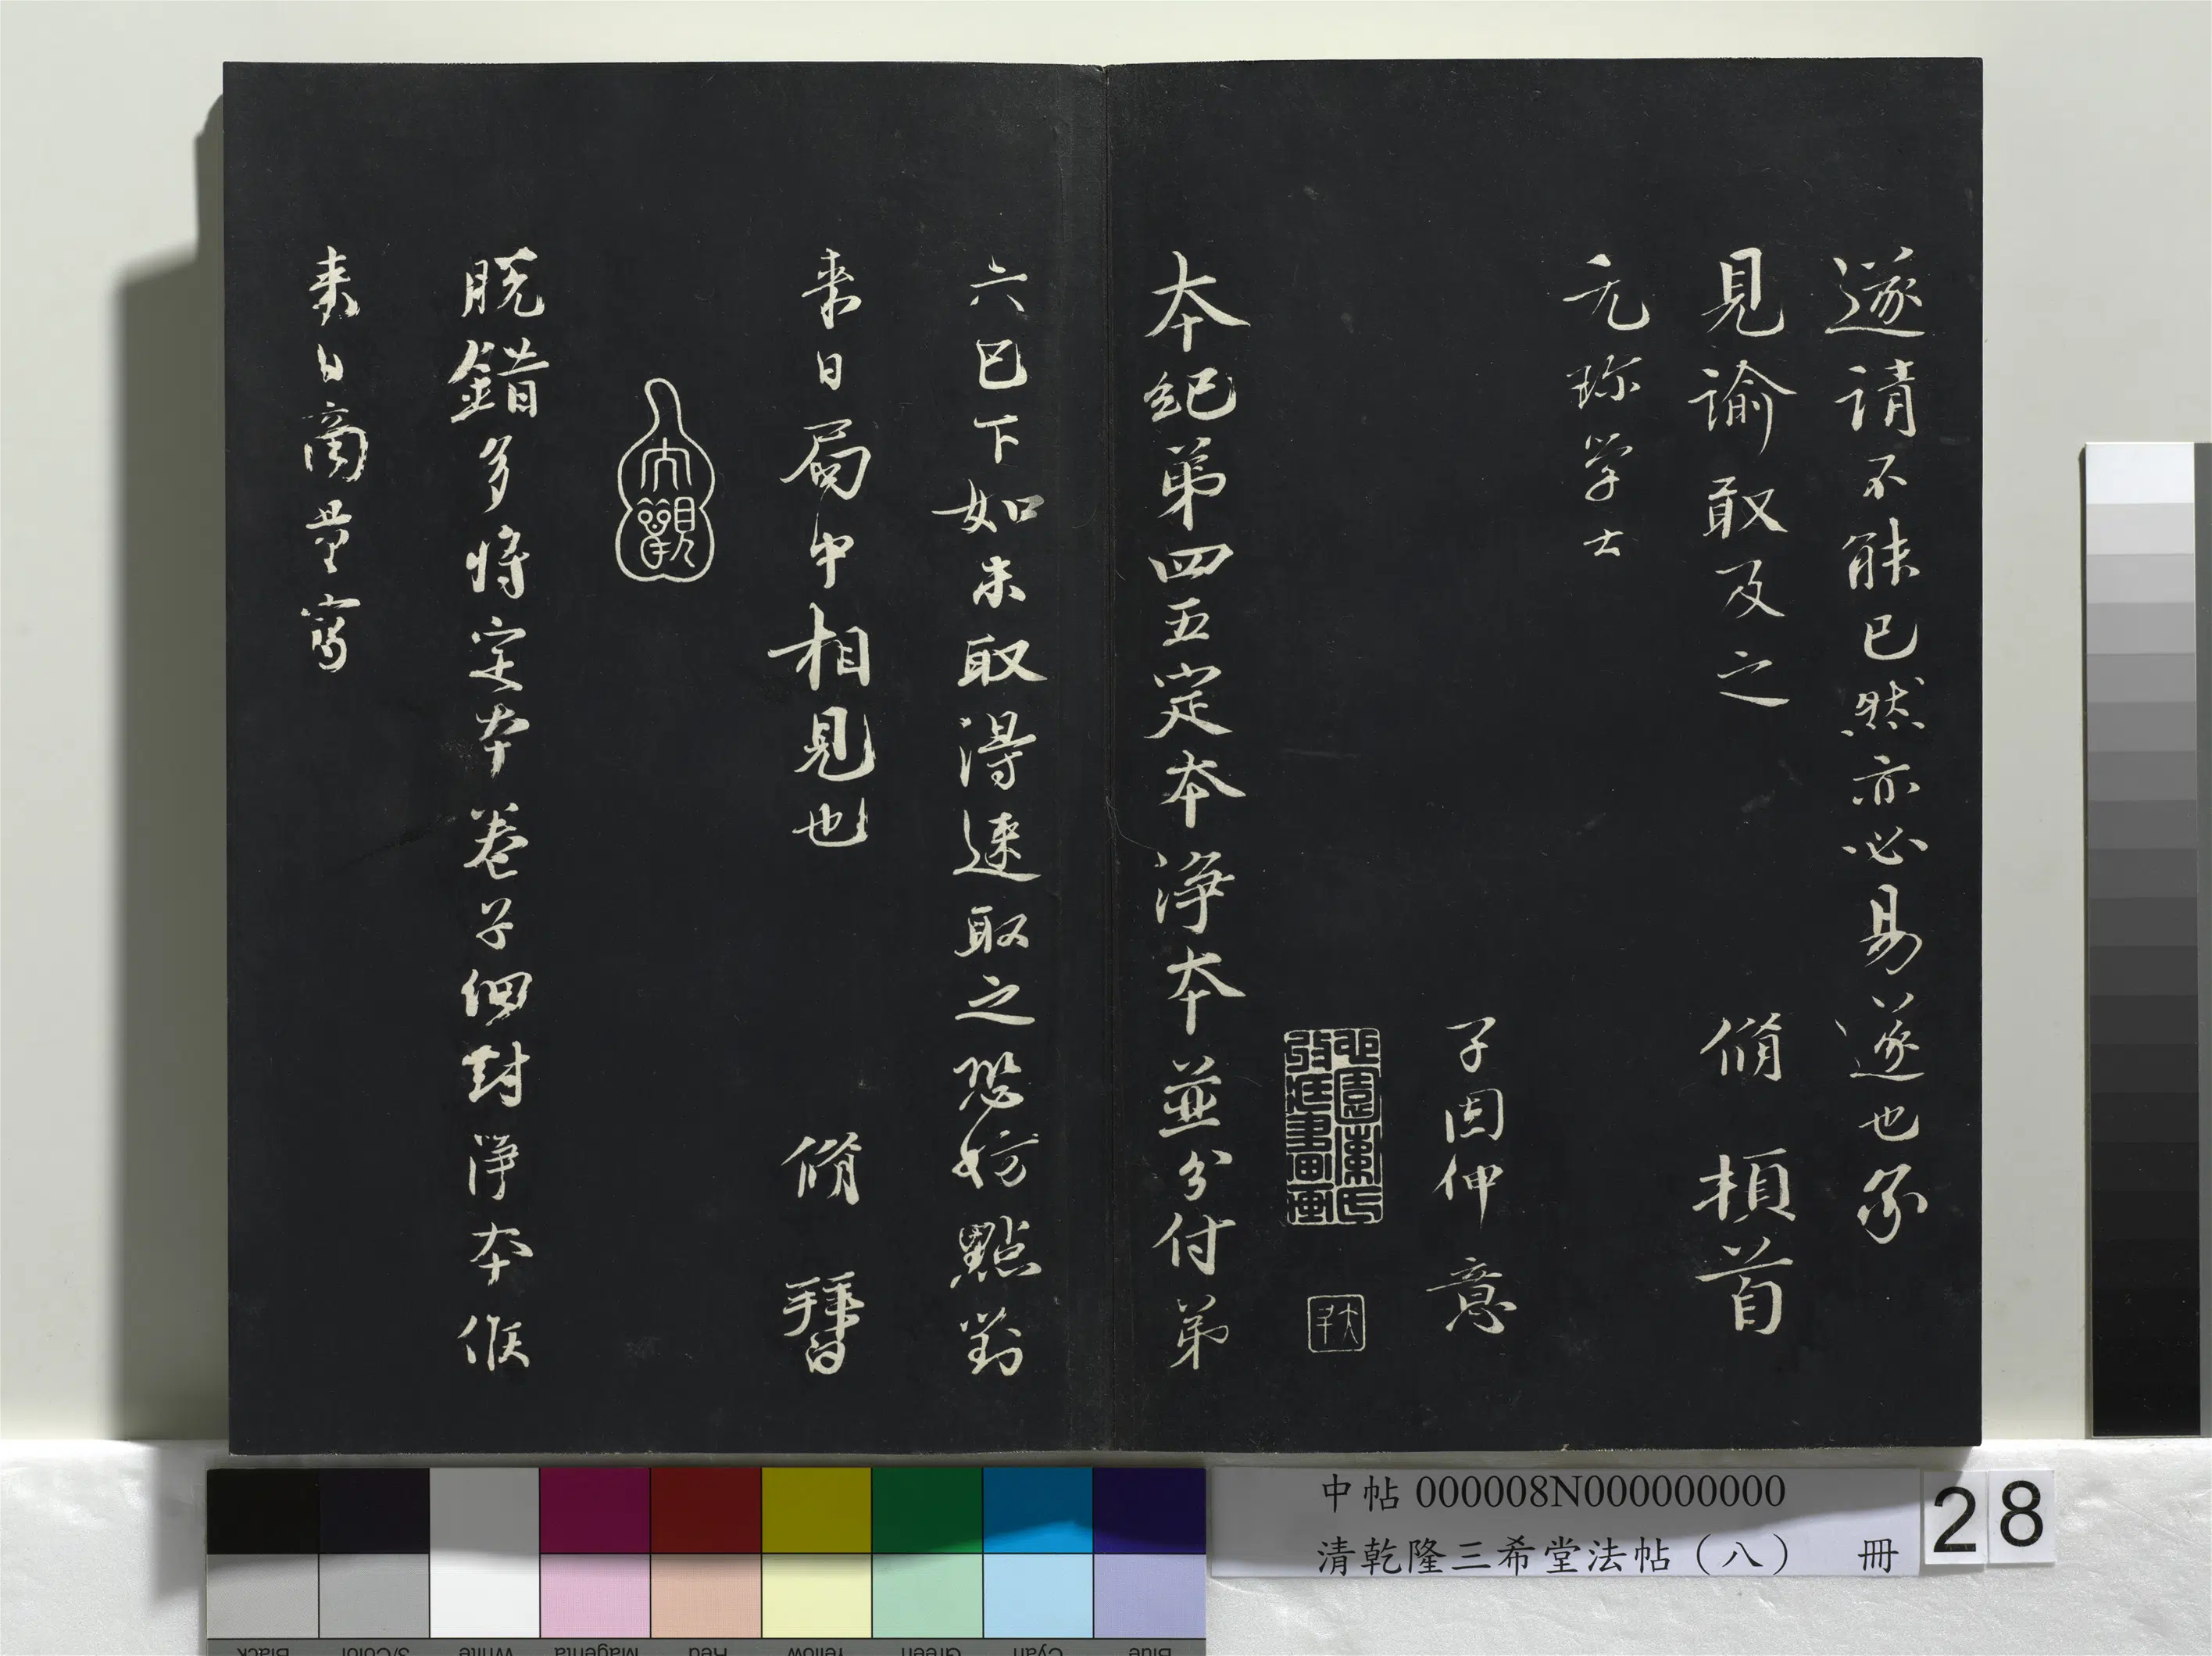 遂請不能已然亦必易遂也蒙
見諭敢及之 脩 頓首
元珍學士
子因仲意
本紀弟四五定本淨本並分付弟
六已下如未取得速取之恐妨點對
來日局中相見也 脩 拜
大觀
脫錯多將定本卷子細對淨本候
來日商量寫
中帖 000008N000000000
清乾隆三希堂法帖（八） 冊
28
Black
3/Color
White
Magenta
Red
Yellow
Green
Cyan
Blue